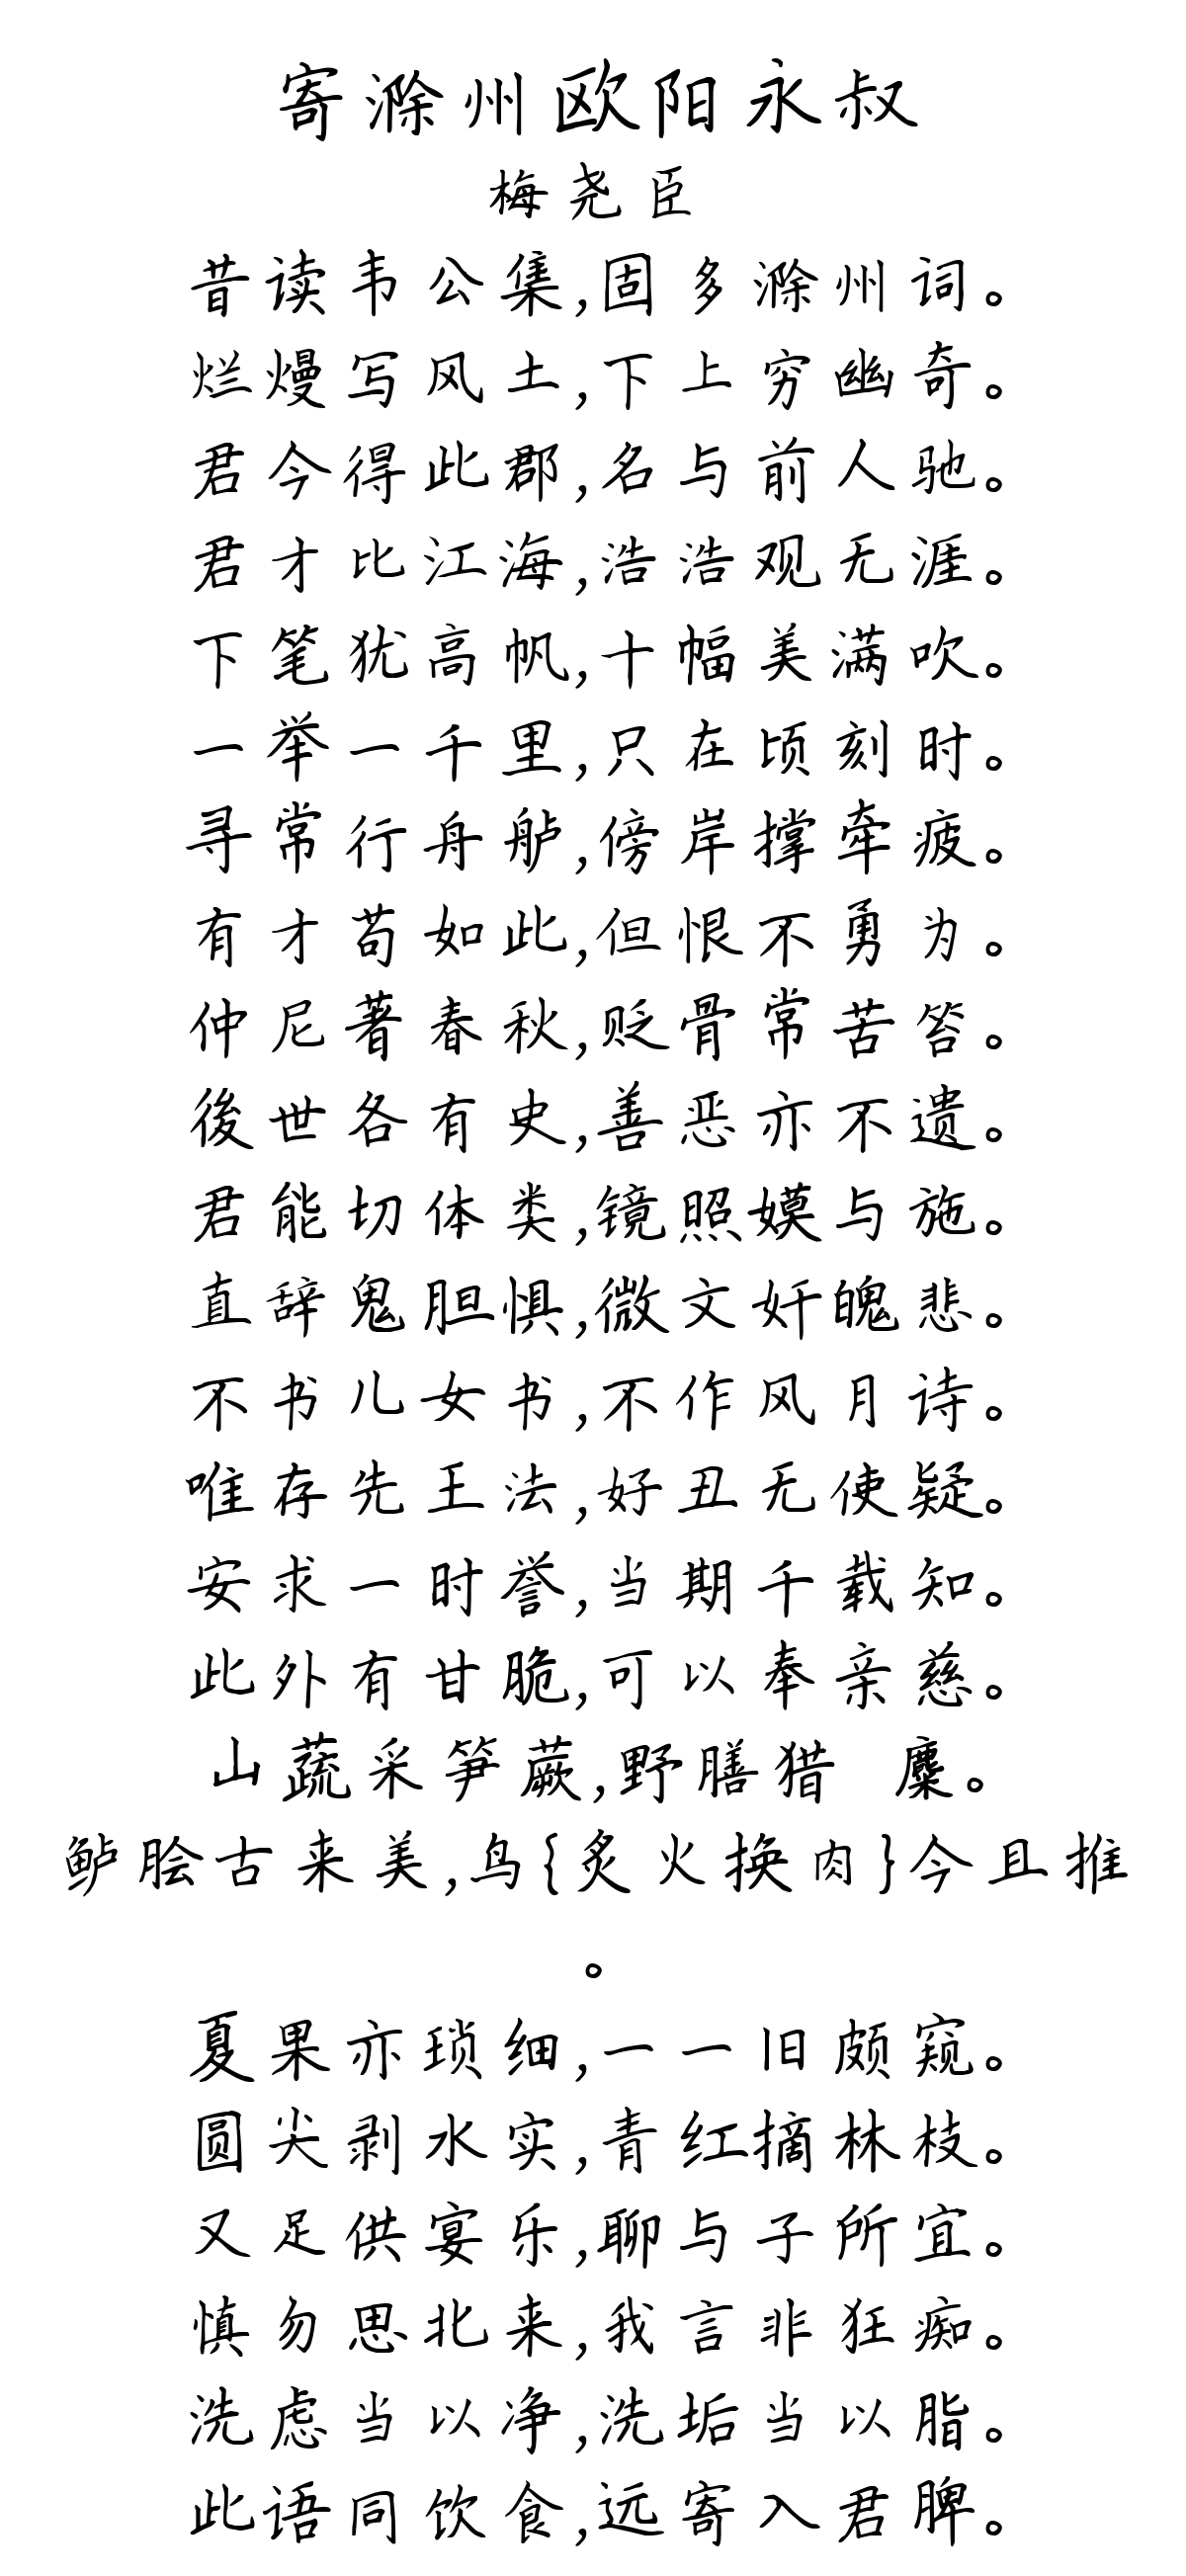 寄滁州欧阳永叔
梅尧臣
昔读韦公集,固多滁州词。
烂熳写风土,下上穷幽奇。
君今得此郡,名与前人驰。
君才比江海,浩浩观无涯。
下笔犹高帆,十幅美满吹。
一举一千里,只在顷刻时。
寻常行舟舻,傍岸撑牵疲。
有才苟如此,但恨不勇为。
仲尼著春秋,贬骨常苦笞。
後世各有史,善恶亦不遗。
君能切体类,镜照嫫与施。
直辞鬼胆惧,微文奸魄悲。
不书儿女书,不作风月诗。
唯存先王法,好丑无使疑。
安求一时誉,当期千载知。
此外有甘脆,可以奉亲慈。
山蔬采笋蕨,野膳猎 麋。
鲈脍古来美,鸟{炙火换肉}今且推
。
夏果亦琐细,一一旧颇窥。
圆尖剥水实,青红摘林枝。
又足供宴乐,聊与子所宜。
慎勿思北来,我言非狂痴。
洗虑当以净,洗垢当以脂。
此语同饮食,远寄入君脾。